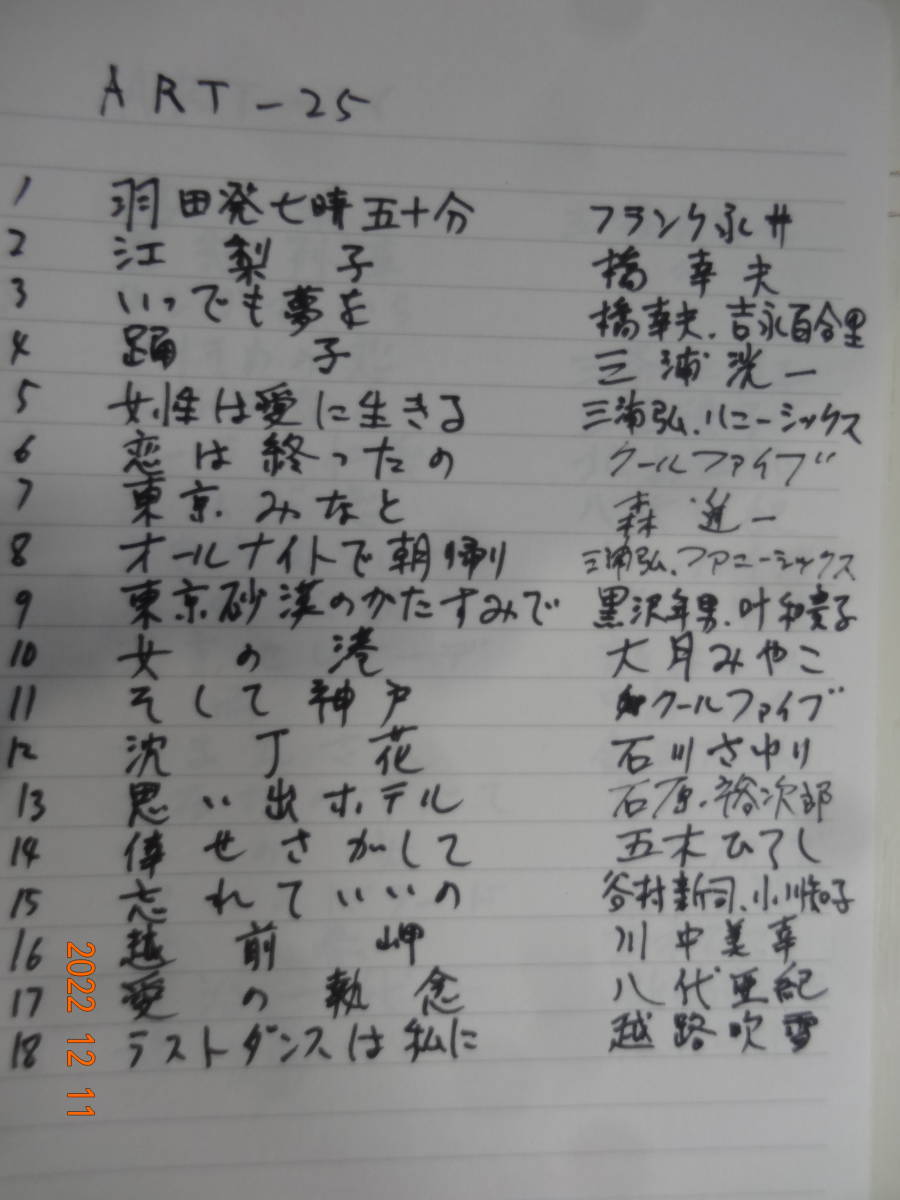 ART-25
1 羽田発七時五十分 フランク永井
2 江梨子 橋幸夫
3 いつでも夢を 橋幸夫、吉永百合里
4 踊子 三浦洸一
5 女性は愛に生きる 三浦弘、ハニーシックス
6 恋は終ったの クールファイブ
7 東京みなと 森進一
8 オールナイトで朝帰り 三浦弘、ファニーシックス
9 東京砂漠のかたすみで 黒沢年男、叶和貴子
10 女の港 大月みやこ
11 そして神戸 クールファイブ
12 沈丁花 石川さゆり
13 思い出ホテル 石原裕次郎
14 倖せさがして 五木ひろし
15 忘れていいの 谷村新司、小川知子
16 越前岬 川中美幸
17 愛の執念 八代亜紀
18 ラストダンスは私に 越路吹雪
2022 12 11